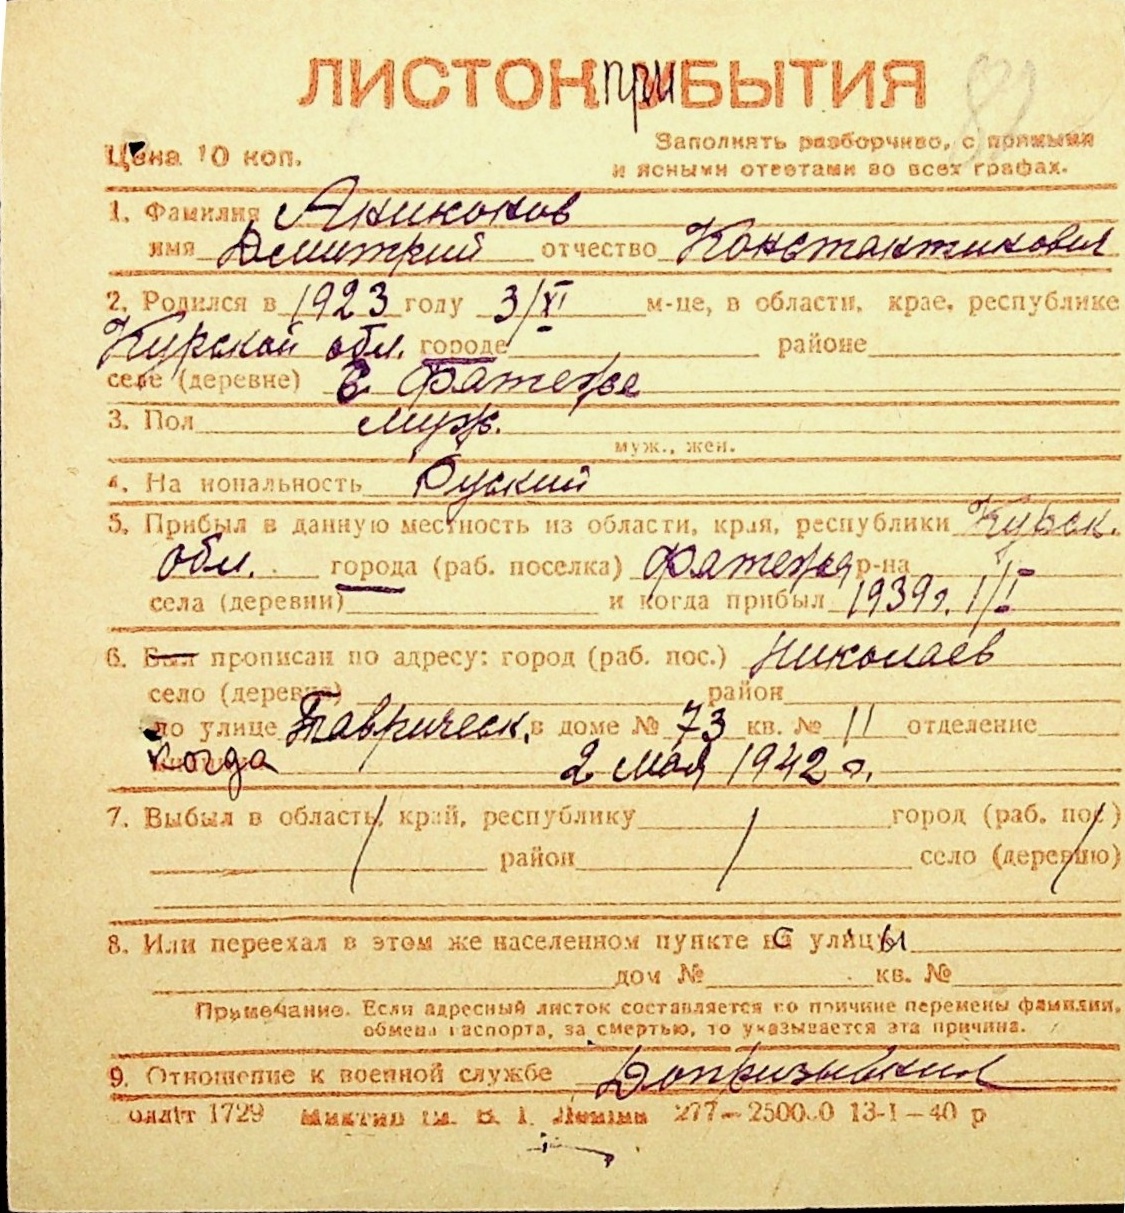 ЛИСТОК ПРИБЫТИЯ
Цена 10 коп.
Заполнять разборчиво, с прямыми
и ясными ответами во всех графах.
1. Фамилия Аниконов
имя Дмитрий отчество Константинович
2. Родился в 1923 году 3/XI м-це, в области, крае, республике
Курской обл. городе районе
селе (деревне) в Фатеже
3. Пол муж.
муж., жен.
4. Национальность Руский
5. Прибыл в данную местность из области, края, республики Курск.
обл. города (раб. поселка) Фатежа р-на
села (деревни) и когда прибыл 1939г. 1/I
6. Был прописан по адресу: город (раб. пос.) Николаев
село (деревне) район
по улице Таврическ. в доме № 73 кв. № 11 отделение
когда 2 мая 1942 г.
7. Выбыл в область, край, республику город (раб. пос.)
район село (деревню)
8. Или переехал в этом же населенном пункте с улицы
дом № кв. №
Примечание. Если адресный листок составляется по причине перемены фамилии,
обмена паспорта, за смертью, то указывается эта причина.
9. Отношение к военной службе Допризывник
1729 им. В. І. Леніна 277— 13-I—40 р